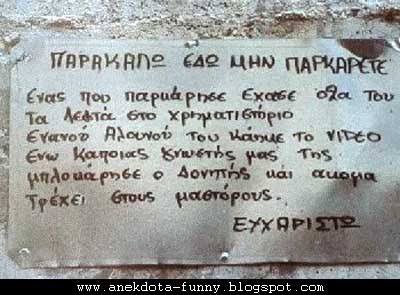 ΠΑΡΑΚΑΛΩ ΕΔΩ ΜΗΝ ΠΑΡΚΑΡΕΤΕ
Ενας που παρκάρησε εχασε ολα του
τα λεφτά στο χρηματιστήριο
Ενανού Αλουνού του κάηκε το VIDEO
ενω καποιας γνωστής μας της
μπλοκάρησε ο Δονητής και ακομα
τρέχει στους μαστόρους.
ΕΥΧΑΡΙΣΤΩ
www.anekdota-funny.blogspot.com